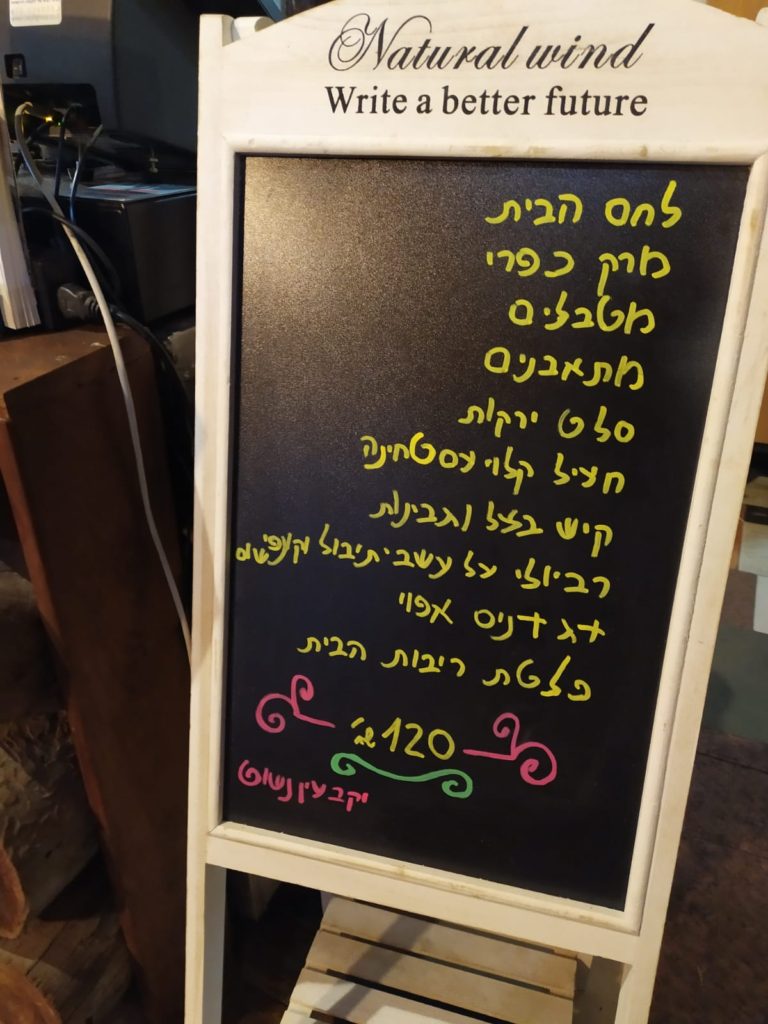 Natural wind
Write a better future
לחם הבית
מרק כפרי
מטבלים
מתאבנים
סלט ירקות
חציל קלוי עם טחינה
קיש בצל וגבינות
רביולי על עשבי תיבול וקונפי שום
דג דניס אפוי
פלטת ריבות הבית
120 ש"ח
יקב עין נשוט